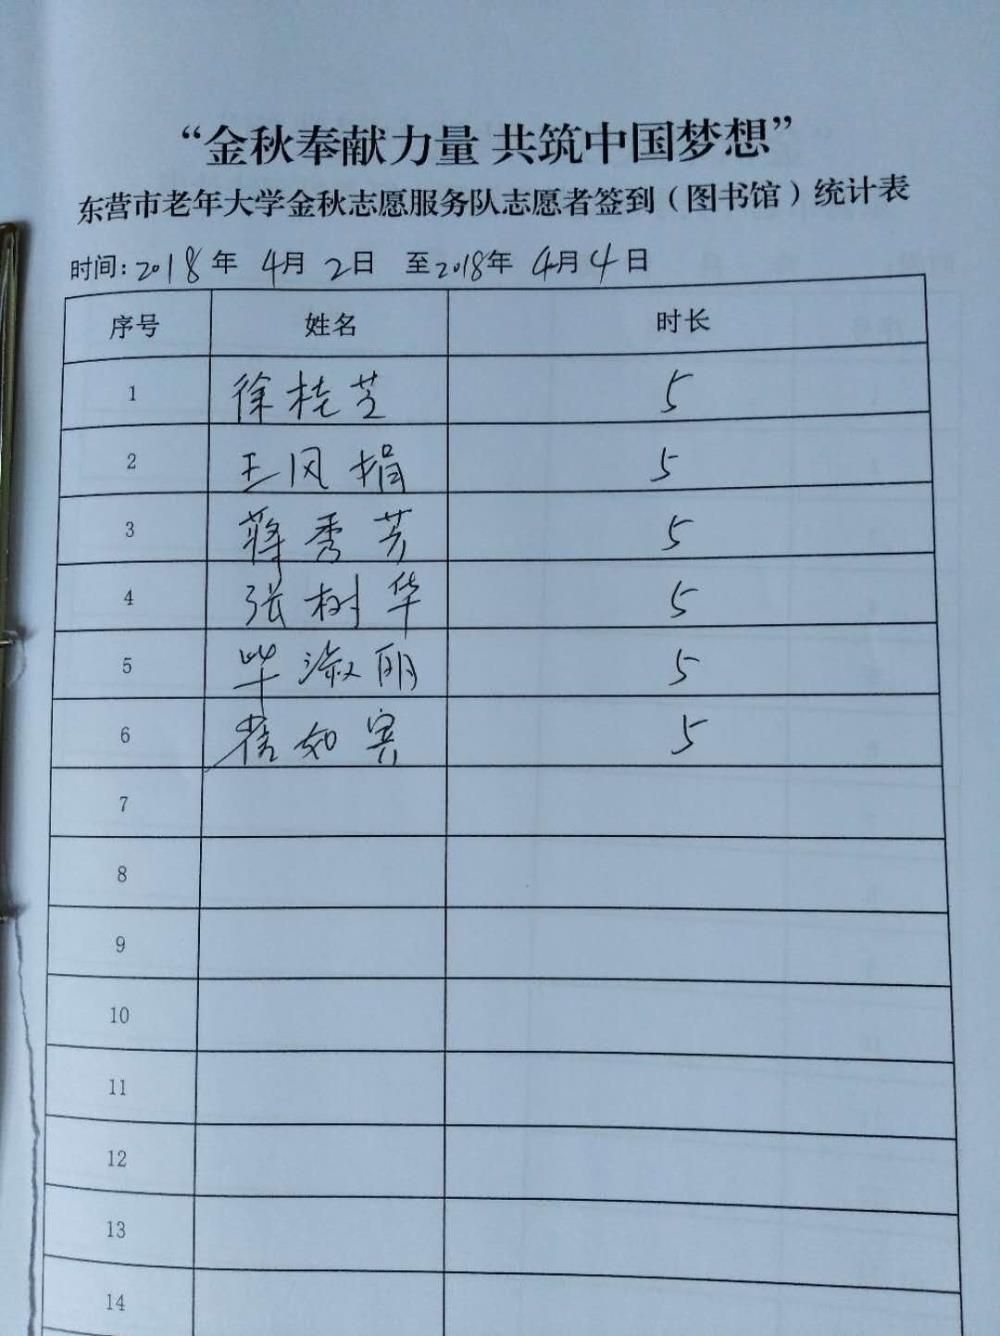 “金秋奉献力量 共筑中国梦想”
东营市老年大学金秋志愿服务队志愿者签到（图书馆）统计表
时间：2018年 4月 2日 至2018年 4月4日
序号 姓名 时长
1 徐桂芝 5
2 王风娟 5
3 蒋秀芳 5
4 张树华 5
5 毕淑丽 5
6 崔如宾 5
7
8
9
10
11
12
13
14